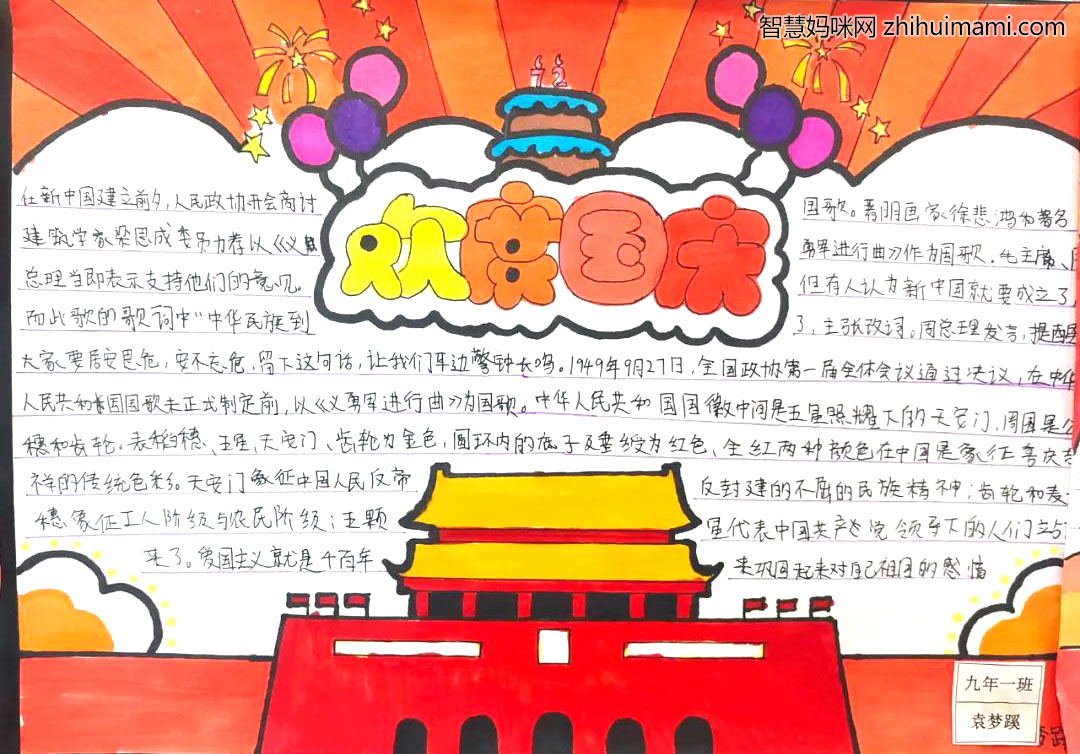 智慧妈咪网 zhihuimami.com
12
欢度国庆
在新中国建立前夕,人民政协开会商讨国歌。著名画家徐悲鸿和著名
建筑学家梁思成等人力荐以《义勇军进行曲》作为国歌.毛主席、
总理当即表示支持他们的意见。但有人认为新中国就要成立了,
而此歌的歌词中"中华民族到了,主张改词。周总理发言,提醒
大家要居安思危,安不忘危,留下这句话,让我们耳边警钟长鸣。1949年9月27日,全国政协第一届全体会议通过决议,在中华
人民共和国国歌未正式制定前,以《义勇军进行曲》为国歌。中华人民共和国国徽中间是五星照耀下的天安门,周围是
穗和齿轮.麦稻穗、五星、天安门、齿轮为金色,圆环内的底子及垂绶为红色、金红两种颜色在中国是象征喜庆
祥的传统色彩。天安门象征中国人民反帝反封建的不屈的民族精神;齿轮和麦
穗象征工人阶级与农民阶级;五颗星代表中国共产党领导下的人们
来了。爱国主义就是千百年来巩固起来对自己祖国的感情
九年一班
袁梦蹊